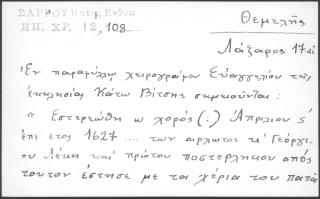 ΣΑΡΡΟΥ
ΗΠ. ΧΡ. 12, 108
Θεμελῆς
Λάζαρος
Ἐν παραφύλλῳ χειρογράφου Εὐαγγελίου τῆς
ἐκκλησίας Κάτω Βίτσης σημειοῦται:
« Εστερεώθη ω χορός (:) Απριλιου ς΄
ἐπι ετος 1627 .... των αιρχωτος κ' Γεόργι-
ου Λέκα και πρώτου ποστερληκιου οπός
τουτον έστησε με τα χέρια του παπα